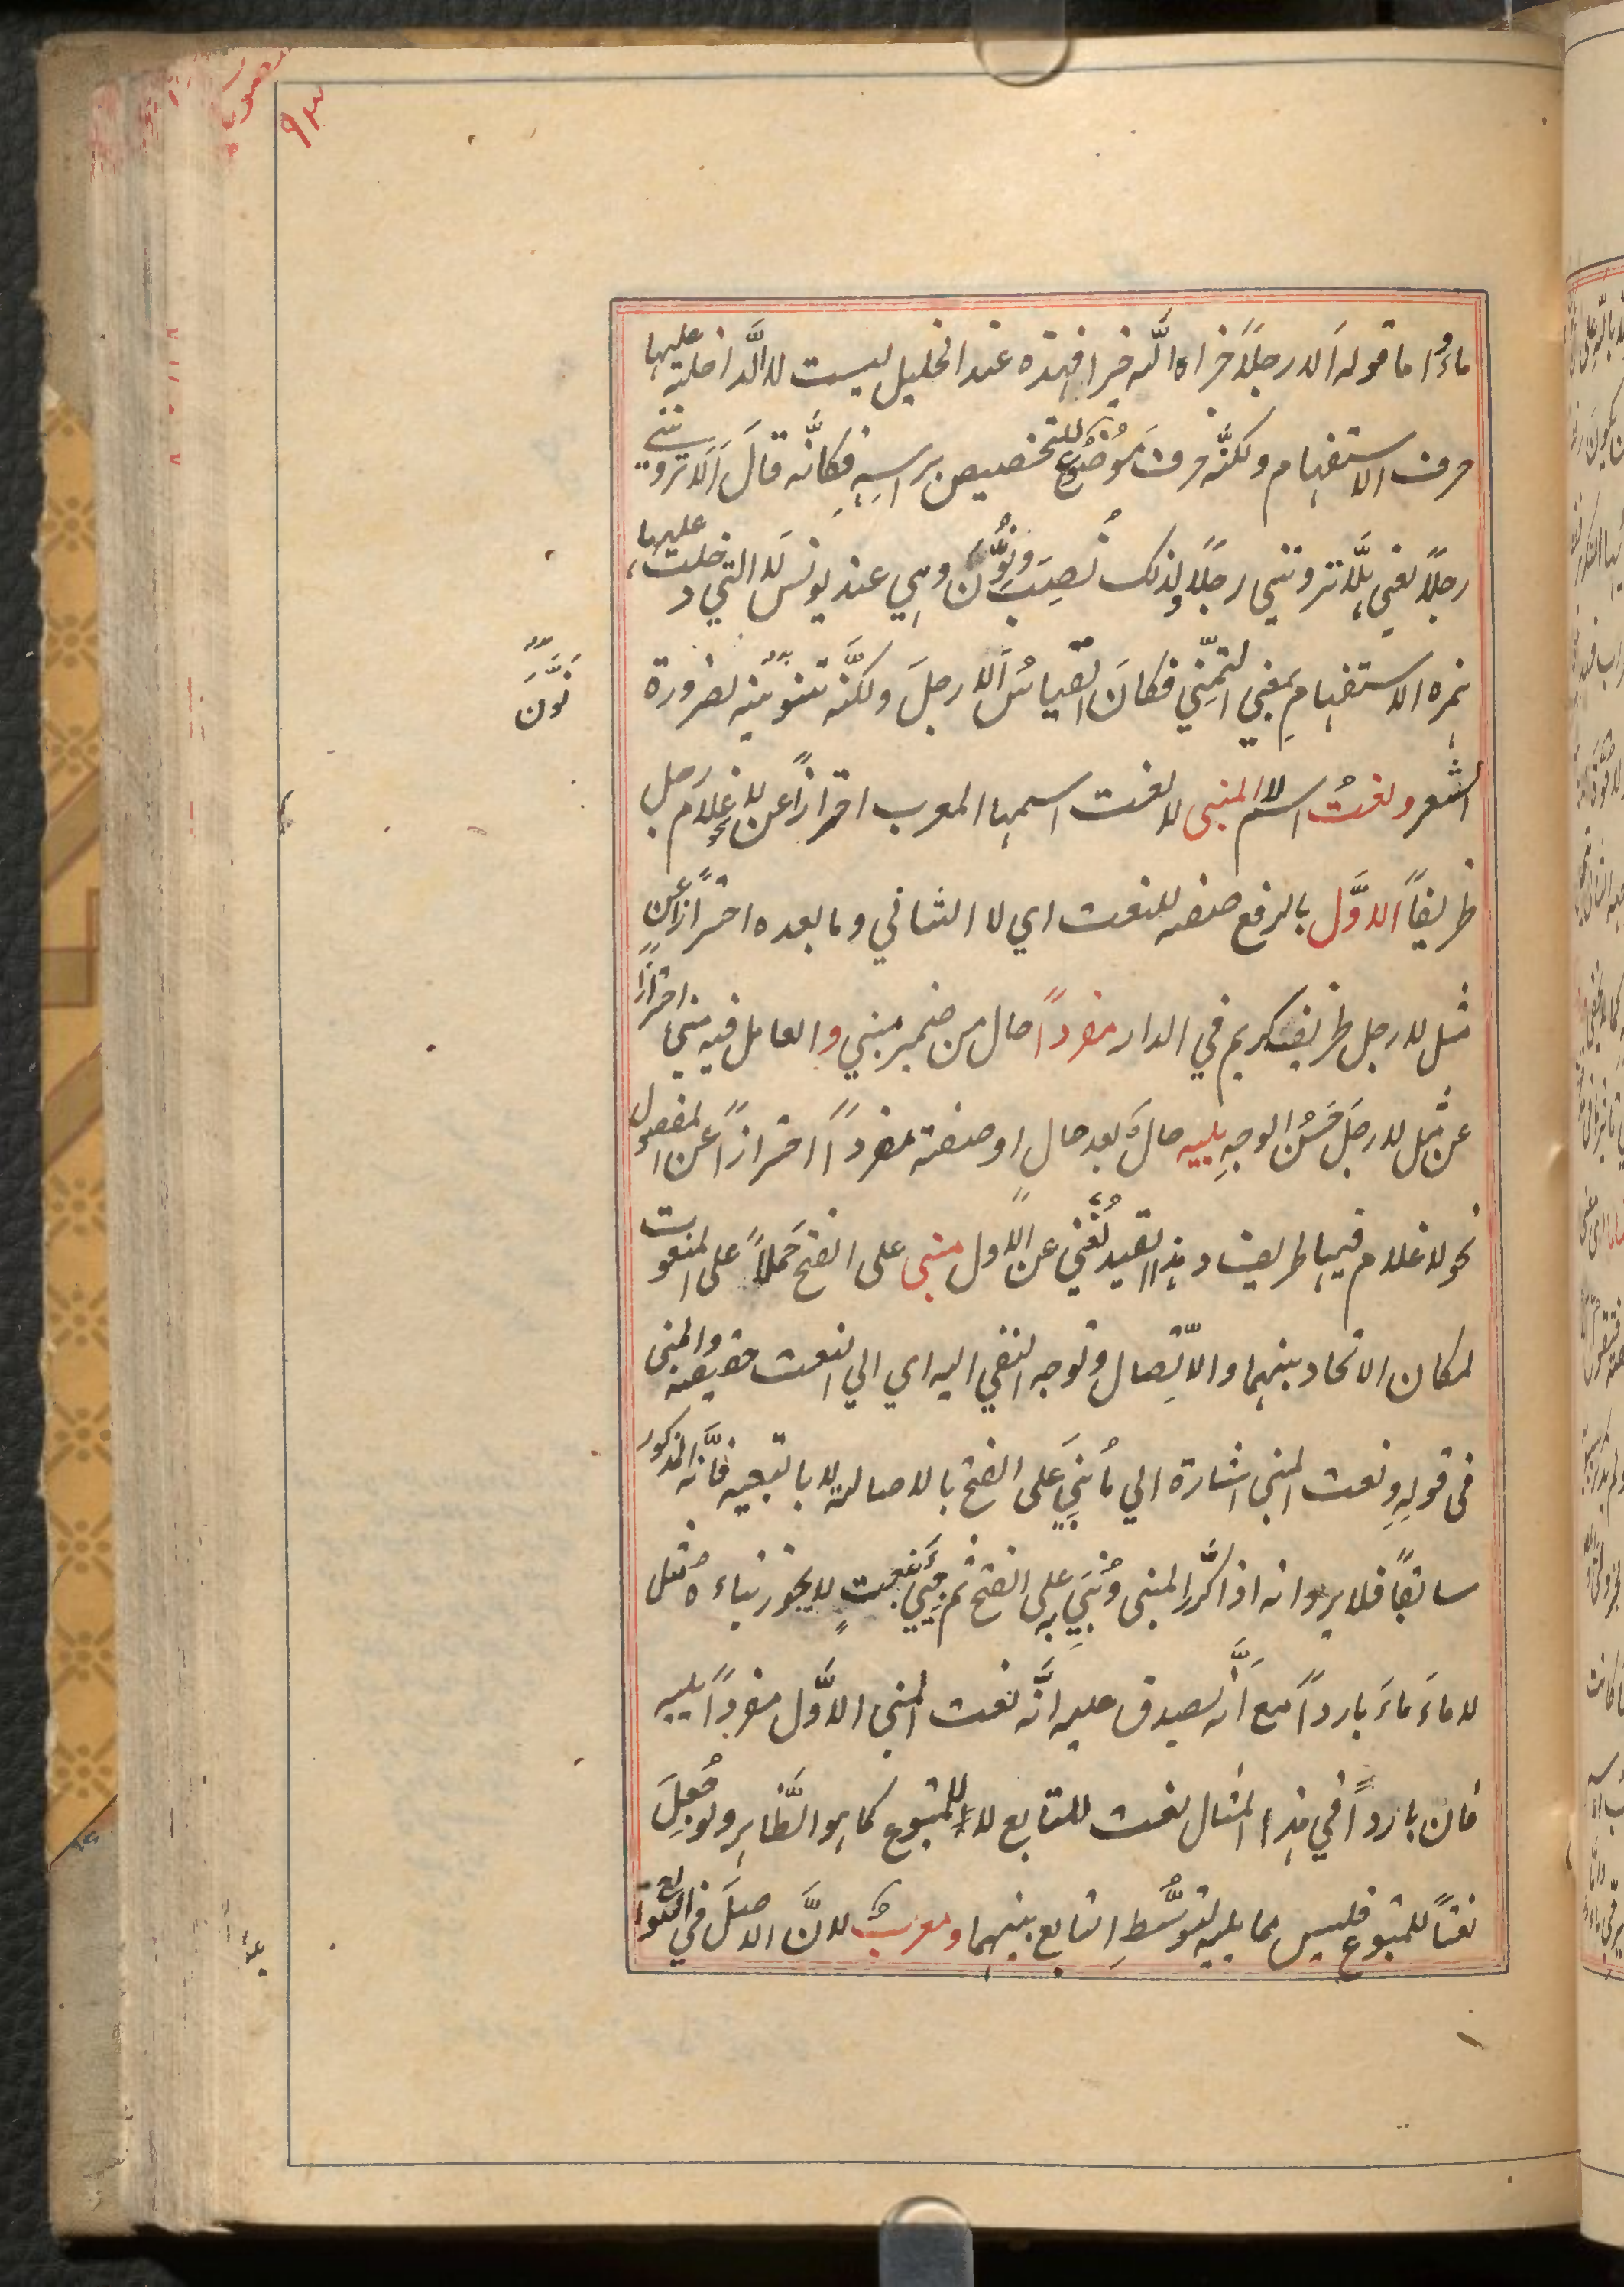 ماءَ واما قوله اَلا رجلًا جزاه اللّٰه خيرا فهذه عند الخليل ليست لا الَّداخلة عليها
حرف الاستفهام ولكنَّه حرف مَوضُوع للتخصيص براسِهِ فكانَّه قالَ اَلَا تروننى
رجلًا يعني هَلَّا تروننِي رجلًا ولذلك نُصِبَ ونُوِّنَ وهِي عند يونس لَا التي دخلت عليها
همزه الاستفهامِ بمعنى التمنّي فكانَ القياسُ اَلا رجلَ ولكنَّه تنوينه لضرورة
الشعر ونعتُ اسم لا المبنى لا نعت اسمها المعرب احترازًا عن نحو لا غلام رجل
ظريفًا الاوَّل بالرفع صفه للنعت اي لا الثاني وما بعده احترازًا عن
مثل لا رجل ظريف كريم في الدار مفردًا حال من ضمير مبني والعامل فيه مبنى احترازًا
عن مثل لا رجلَ حَسُن الوجهِ يليه حالٌ بعد حال او صفته مفردًا احترازًا عن المفصول
نحو لا غلام فيها ظريف وهذا القيد يُغنى عن الاول مبنى على الفتح حَملًا على المنعوت
لمكان الاتحاد بينهما والاتِّصال وتوجه النفي اليه اي الي النعت حقيقة والمبنى
فى قولِهِ ونعت المبنى اشارة الي ما بُنِيَ على الفتح بالاصالة لا بالتبعيه فانَّه المذكور
سابقًا فلا يرد انه اذا كُرِّر المبنى وبُنِيَ على الفتح ثم جِيئَ بنعتٍ لا يجوز بناءه مثل
لا ماءَ ماءَ باردًا مع اَنَّه يصدق عليه انَّه نعت المبنى الاوَّل مفردًا يليه
فان باردًا في هذا المثال نعت للتابع لا للمتبوع كما هو الظَّاهِر ولو جُعِلَ
نعتًا للمتبوع فليس مما يليه لتوسُّطِ التابع بينهما ومعربٌ لانَّ الاصلَ في التوابع
نُوِّنَ